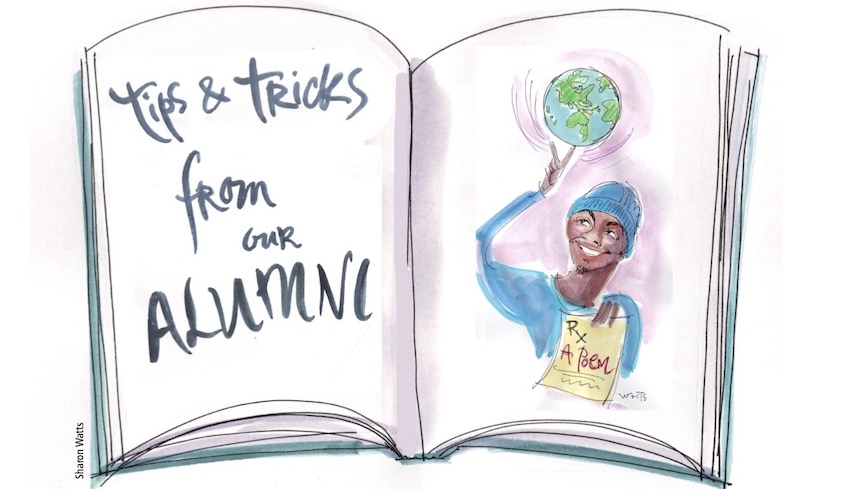 tips & TRICKS
from
our
ALUMNI
Rx
A Poem
WATTS
Sharon Watts